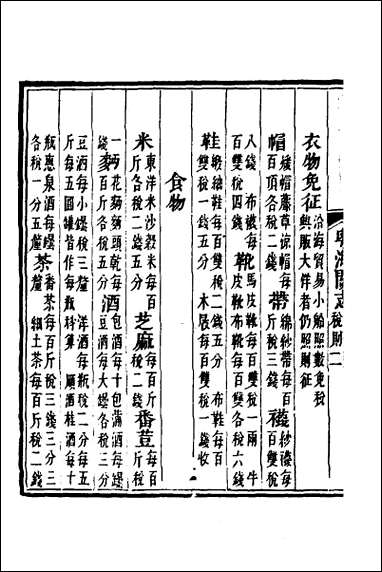 粤海關志 稅則二
衣物免征 沿海貿易小船照數免稅
與服大件者仍照則征
帽 緞帽藤草涼帽每
百頂各稅二錢 帶 綿紗帶每百
斤稅三錢 襪 紗襪每
百雙稅
八錢 布襪每
百雙稅四錢 靴 馬皮靴每百雙稅一兩 牛
皮靴布靴每百雙各稅六錢
鞋 緞絨鞋每百雙稅二錢五分 布鞋每百
雙稅一錢五分 木屐每百雙稅一錢收
食物
米 東洋米沙穀米每百
斤各稅二錢 芝麻 每百斤稅
二錢五分 番荳 每百
斤稅
一錢 麪 花麪麪頭乾每
百斤各稅五分 酒 包酒每十包滿酒每埕
豆酒每大埕各稅三分
豆酒每小埕稅三釐 洋酒每瓶稅二分每五
斤每五圓罐皆作每瓶科算 廟酒桂酒每十
瓶惠泉酒每埕
各稅一分五釐 茶 番茶每百斤稅三錢三分三
釐 細土茶每百斤稅二錢